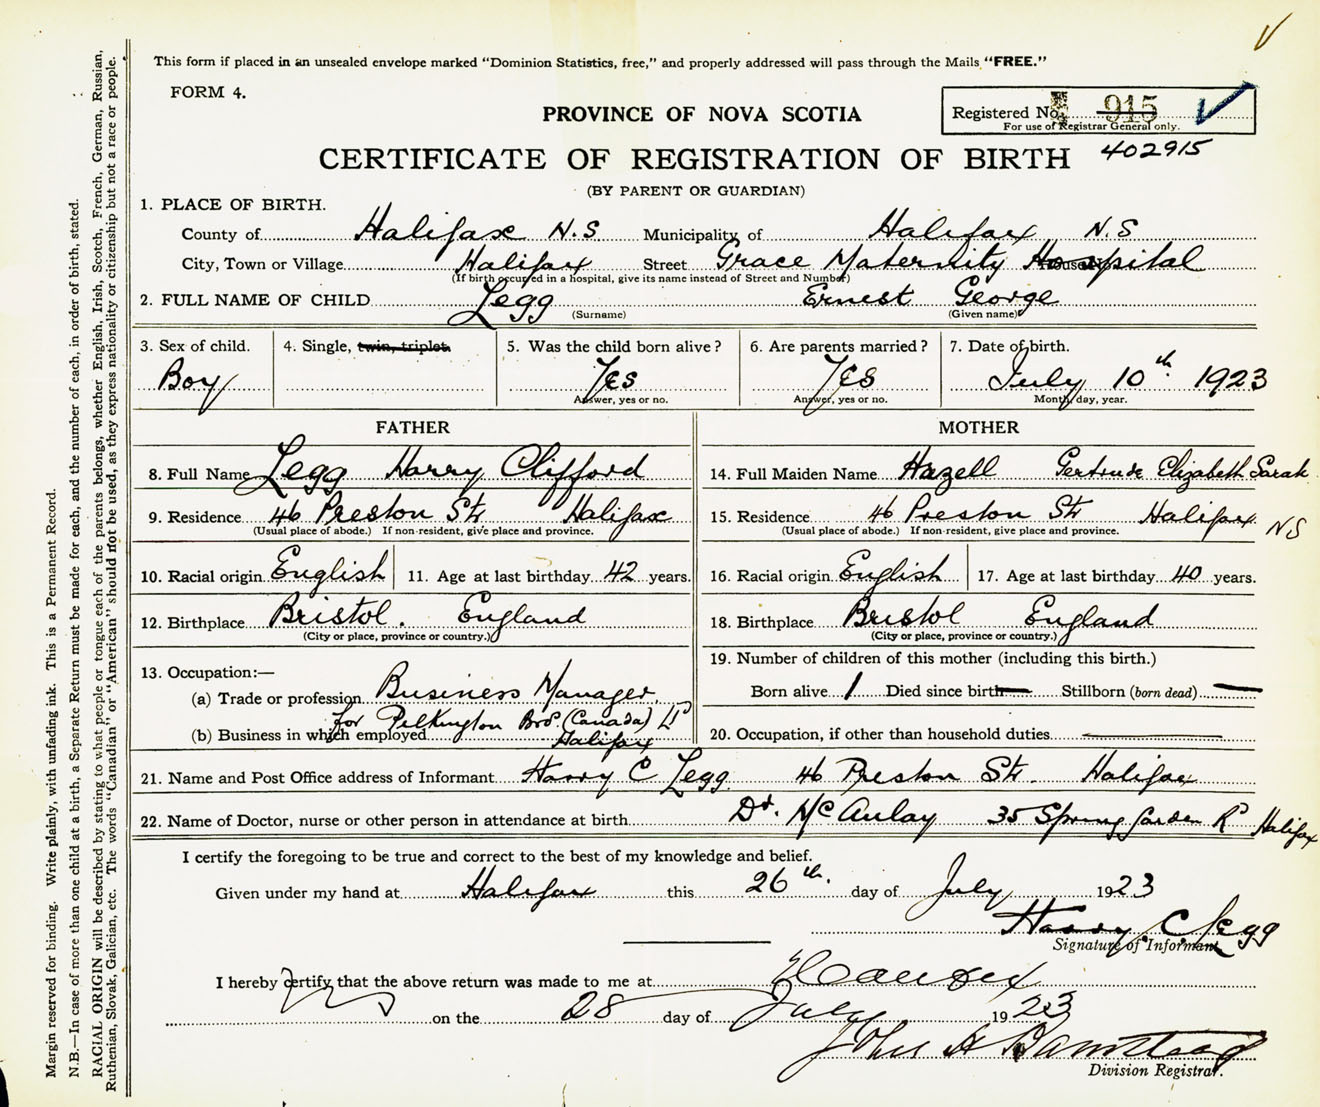 This form if placed in an unsealed envelope marked "Dominion Statistics, free," and properly addressed will pass through the Mails "FREE."
FORM 4.
PROVINCE OF NOVA SCOTIA
Registered No. 915
For use of Registrar General only.
402915
CERTIFICATE OF REGISTRATION OF BIRTH
(BY PARENT OR GUARDIAN)
1. PLACE OF BIRTH.
County of Halifax N.S. Municipality of Halifax N.S
City, Town or Village Halifax Street Grace Maternity Hospital
(If birth occurred in a hospital, give its name instead of Street and Number)
2. FULL NAME OF CHILD Legg Ernest George
(Surname) (Given name)
3. Sex of child. 4. Single, twin, triplet. 5. Was the child born alive? 6. Are parents married? 7. Date of birth.
Boy Yes Yes July 10th 1923
Answer, yes or no. Answer, yes or no. Month, day, year.
FATHER
8. Full Name Legg Harry Clifford
9. Residence 46 Preston Str Halifax
(Usual place of abode.) If non-resident, give place and province.
10. Racial origin English 11. Age at last birthday 42 years.
12. Birthplace Bristol. England
(City or place, province or country.)
13. Occupation:—
(a) Trade or profession Business Manager
for Pilkington Bros. (Canada) Ltd
(b) Business in which employed Halifax
MOTHER
14. Full Maiden Name Hazell Gertrude Elizabeth Sarah
15. Residence 46 Preston Str Halifax NS
(Usual place of abode.) If non-resident, give place and province.
16. Racial origin English 17. Age at last birthday 40 years.
18. Birthplace Bristol England
(City or place, province or country.)
19. Number of children of this mother (including this birth.)
Born alive 1 Died since birth — Stillborn (born dead) —
20. Occupation, if other than household duties —
21. Name and Post Office address of Informant Harry C Legg 46 Preston Str. Halifax
22. Name of Doctor, nurse or other person in attendance at birth Dr. McAulay 35 Spring Garden Rd Halifax
I certify the foregoing to be true and correct to the best of my knowledge and belief.
Given under my hand at Halifax this 26th. day of July 1923
Harry C Legg
Signature of Informant
I hereby certify that the above return was made to me at Halifax
on the 28 day of July 1923
John A
Division Registrar.
Margin reserved for binding. Write plainly, with unfading ink. This is a Permanent Record.
N.B.—In case of more than one child at a birth, a Separate Return must be made for each, and the number of each, in order of birth, stated.
RACIAL ORIGIN will be described by stating to what people or tongue each of the parents belongs, whether English, Irish, Scotch, French, German, Russian,
Ruthenian, Slovak, Galician, etc. The words "Canadian" or "American" should not be used, as they express nationality or citizenship but not a race or people.